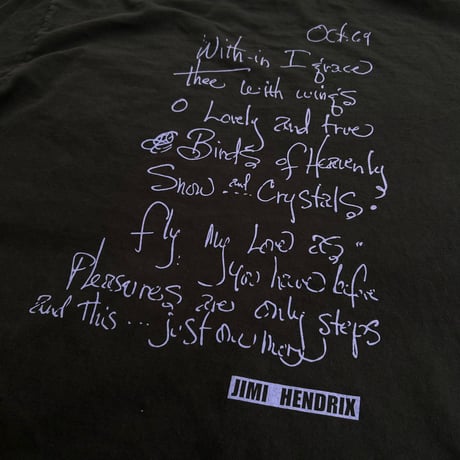 Oct. 69
With-in I grace
thee with wings
O Lovely and true
Birds of Heavenly
Snow and... Crystals.
fly. My Love as..
you have before
Pleasures are only steps
and this... just one more
JIMI HENDRIX